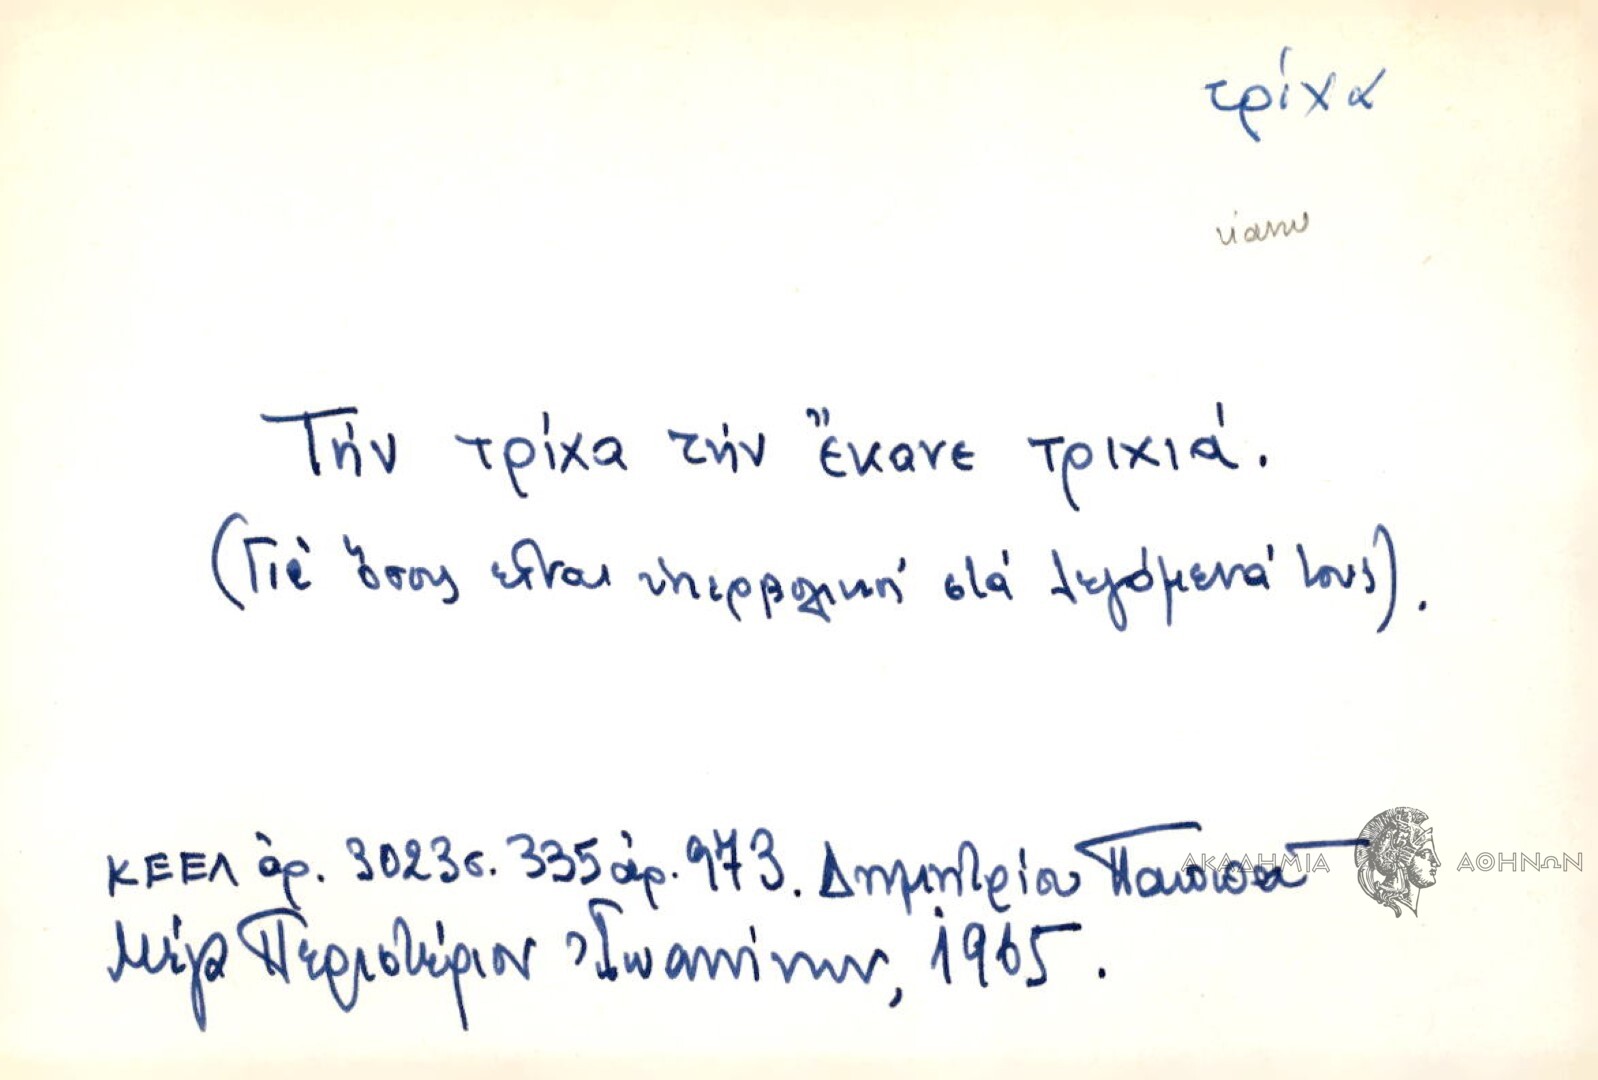 τρίχα
κάνω
Τήν τρίχα τήν ἔκανε τριχιά.
(Γιὰ ὅσους εἶναι ὑπερβολικοί στά λεγόμενά τους).
ΚΕΕΛ ἀρ. 3023 σ. 335 ἀρ. 973. Δημητρίου
Μέγα Περιστέριον Ἰωαννίνων, 1965.
ΑΚΑΔΗΜΙΑ ΑΘΗΝΩΝ